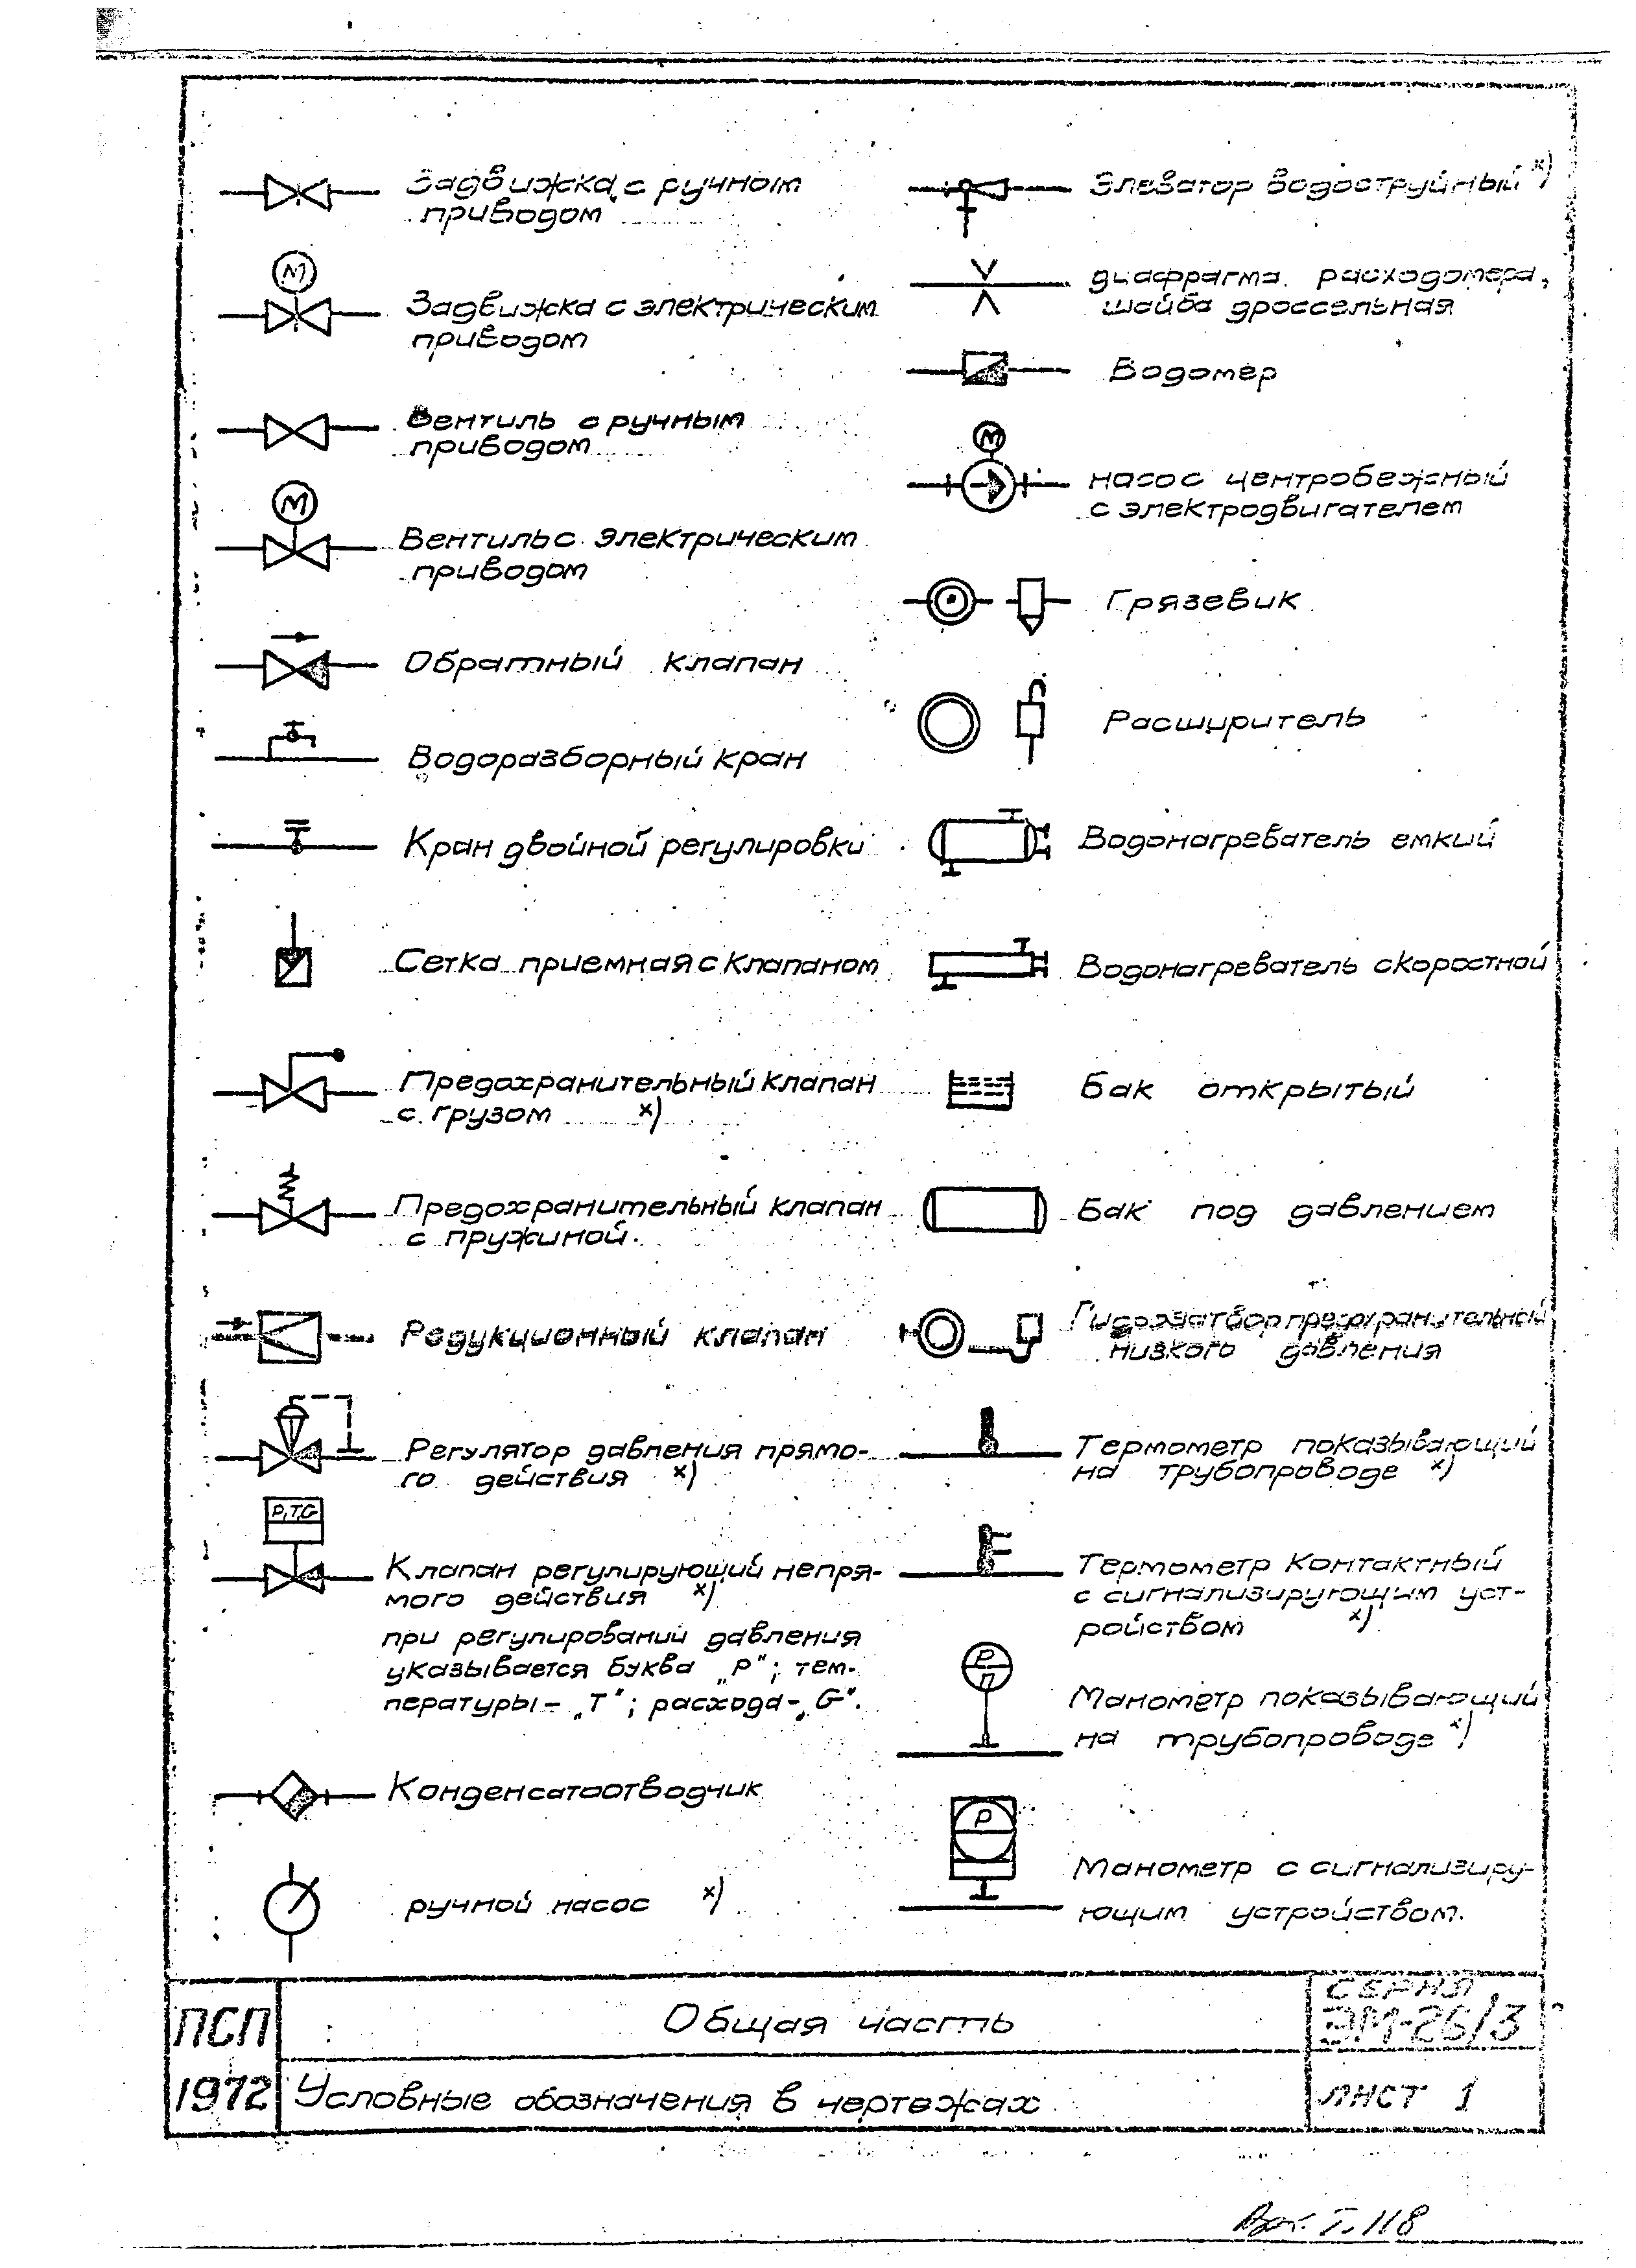 Задвижка с ручным
приводом
М
Задвижка с электрическим
приводом
Вентиль с ручным
приводом
М
Вентиль с электрическим
приводом
Обратный клапан
Водоразборный кран
Кран двойной регулировки
Сетка приемная с клапаном
Предохранительный клапан
с грузом х)
Предохранительный клапан
с пружиной.
Редукционный клапан
Регулятор давления прямо-
го действия х)
P,T,G
Клапан регулирующий непря-
мого действия х)
при регулировании давления
указывается буква „Р"; тем-
пературы - „Т"; расхода - „G".
Конденсатоотводчик
ручной насос х)
Элеватор водоструйный х)
диафрагма расходомера,
шайба дроссельная
Водомер
М
насос центробежный
с электродвигателем
Грязевик
Расширитель
Водонагреватель емкий
Водонагреватель скоростной
Бак открытый
Бак под давлением
Гидрозатвор предохранительный
низкого давления
Термометр показывающий
на трубопроводе х)
Термометр контактный
с сигнализирующим уст-
ройством х)
Р
П
Манометр показывающий
на трубопроводе х)
Р
Манометр с сигнализиру-
ющим устройством.
ПСП
1972
Общая часть
Условные обозначения в чертежах
СЕРИЯ
ЭМ-26/3
ЛИСТ 1
118